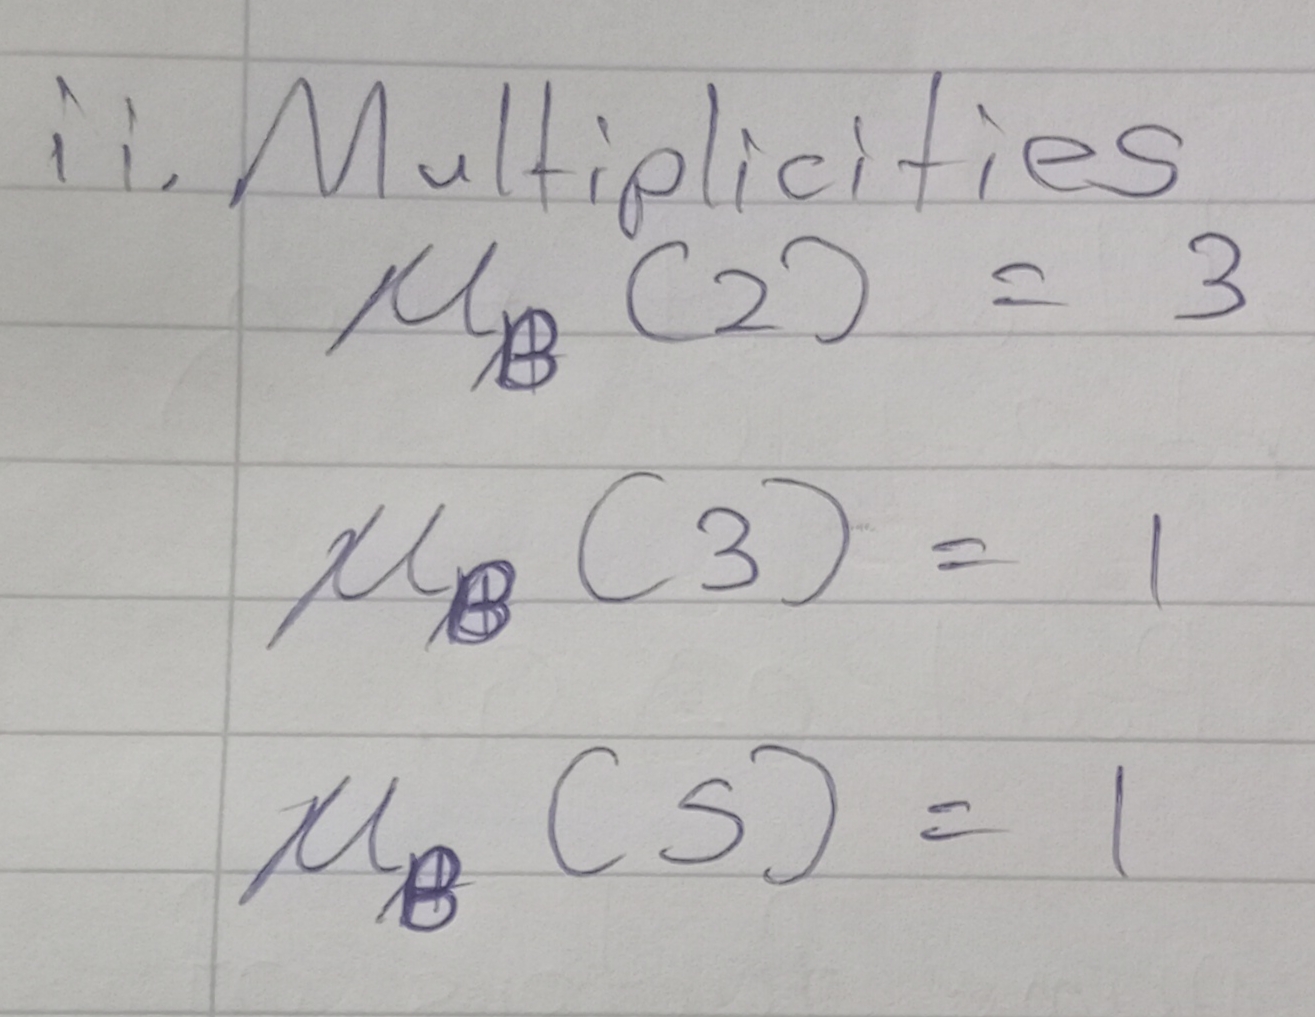 ii. Multiplicities
μ_B (2) = 3
μ_B (3) = 1
μ_B (5) = 1